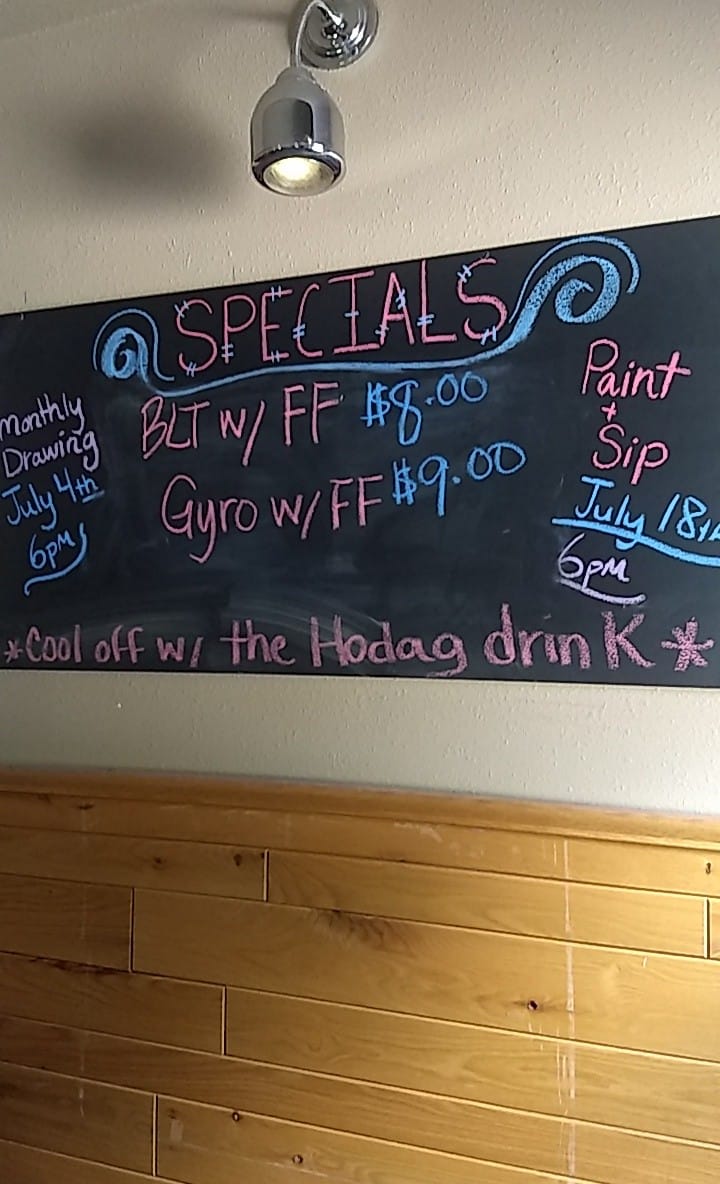 SPECIALS
BLT w/ FF $8.00
Gyro w/ FF $9.00
Monthly
Drawing
July 4th
6pm
Paint
+
Sip
July 18th
6pm
*Cool off w/ the Hodag drinK*